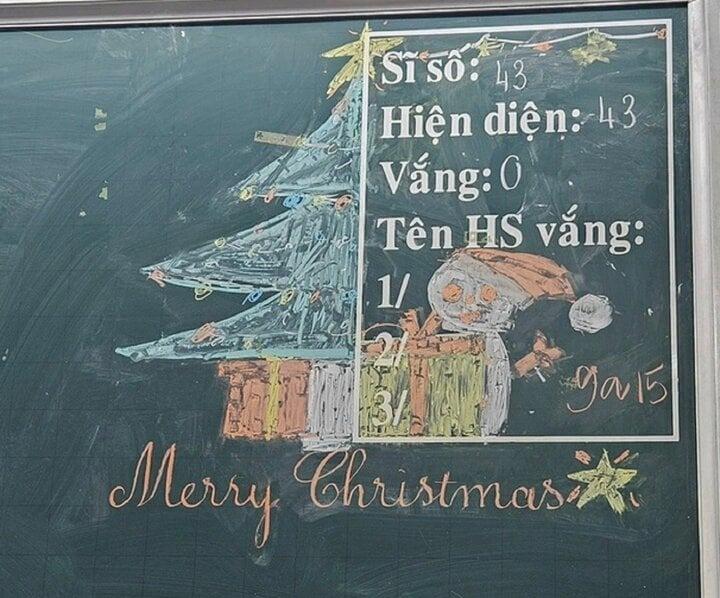 Sĩ số: 43
Hiện diện: 43
Vắng: 0
Tên HS vắng:
1/
2/
3/
9a15
Merry Christmas